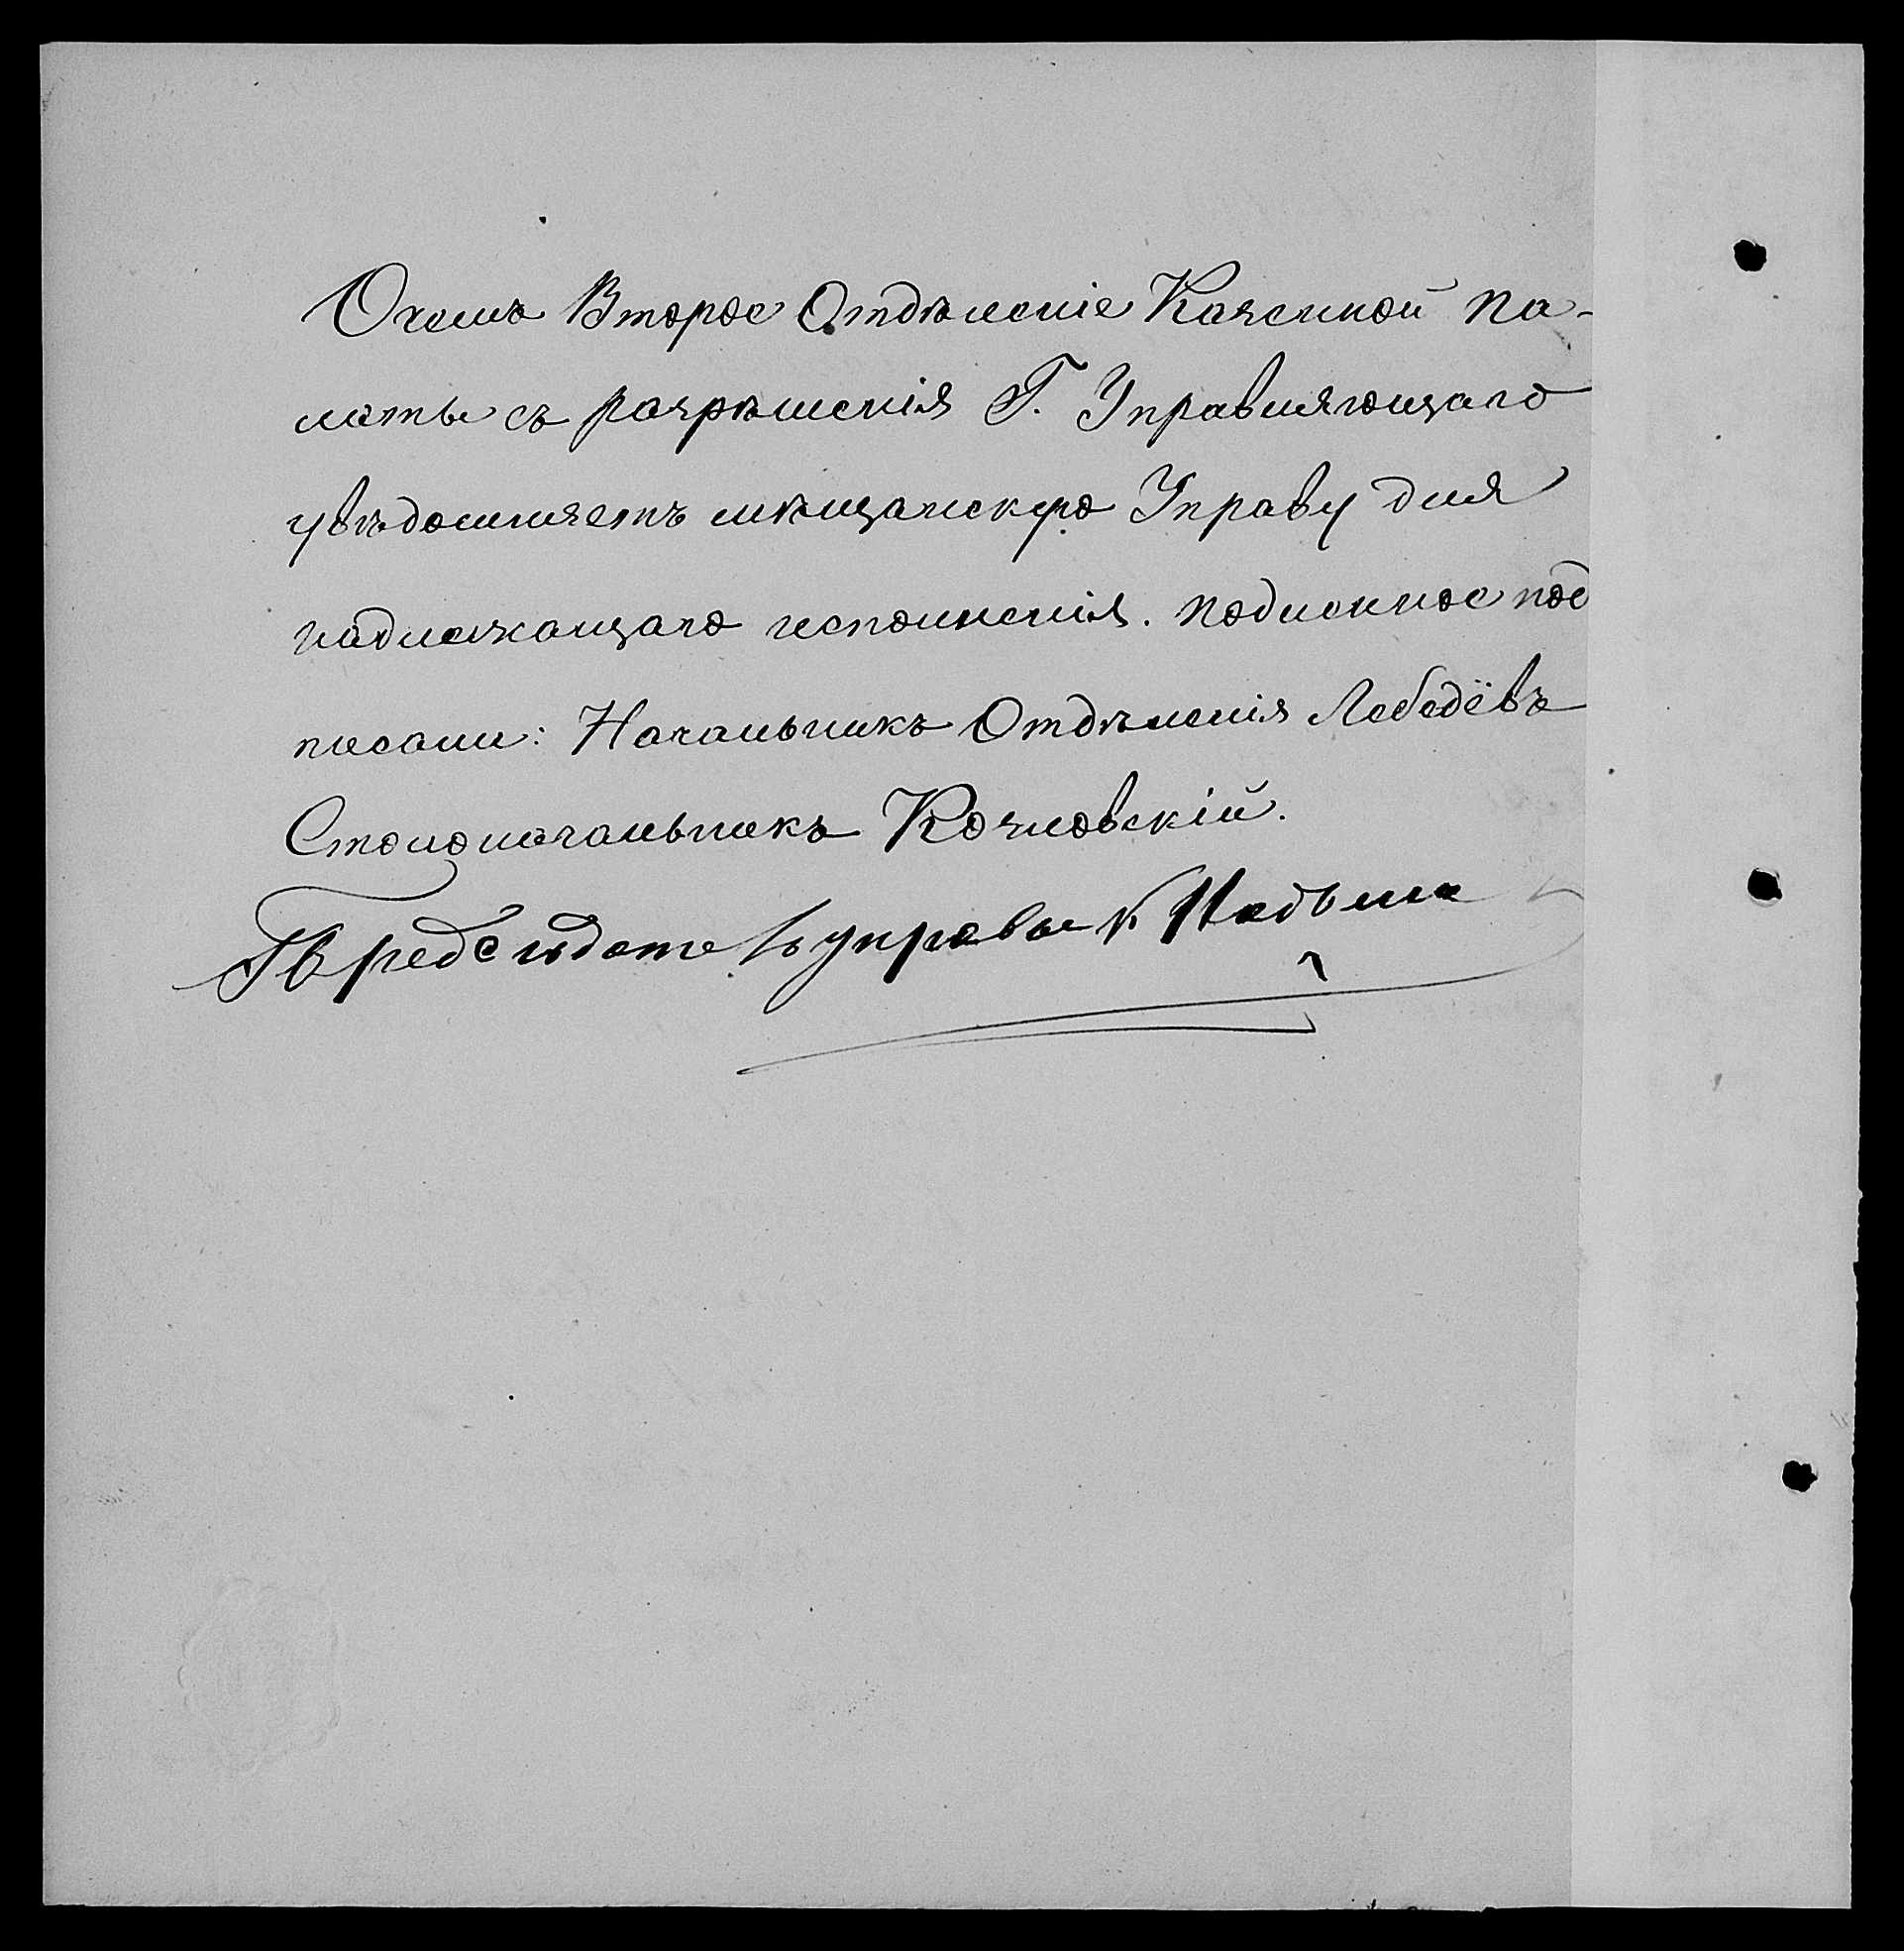 О чемъ Второе Отдѣленіе Казенной Па-
латы съ разрѣшенія Г. Управляющаго
увѣдомляетъ мѣщанскую Управу для
надлежащаго исполненія. Подленное под
писали: Начальникъ Отдѣленія Лебедёвъ
Столоначальникъ Козловскій.
Предсѣдатель управы